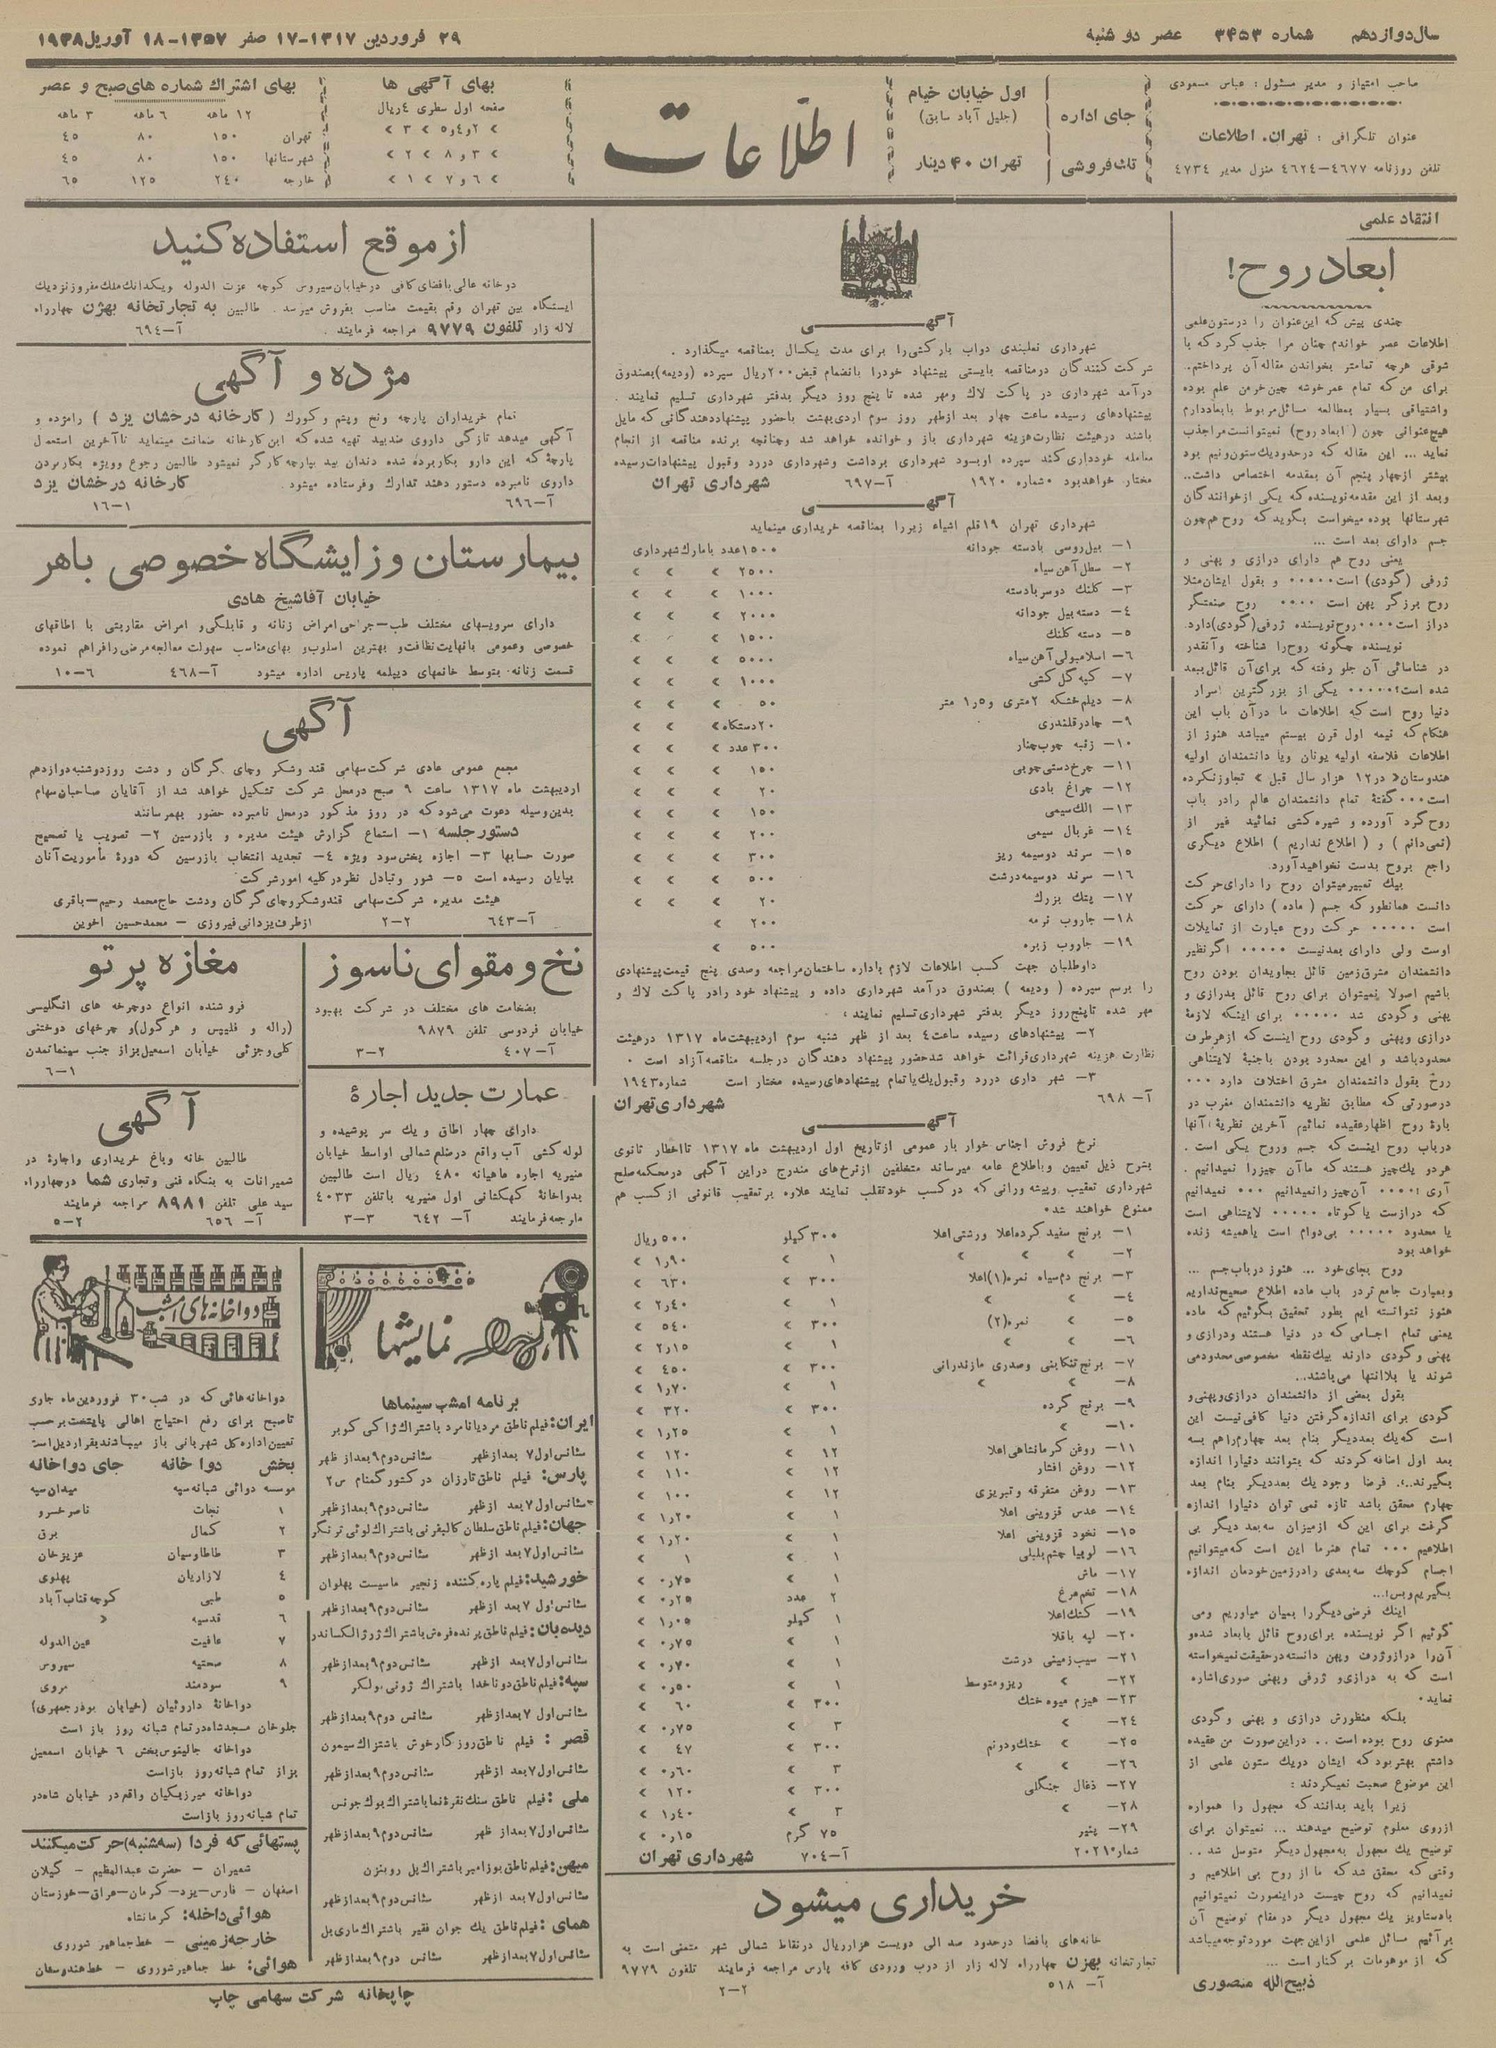 سال دوازدهم شماره ۳۴۵۳ عصر دوشنبه ۲۹ فروردین ۱۳۱۷-۱۷ صفر ۱۳۵۷-۱۸ آوریل ۱۹۳۸
صاحب امتیاز و مدیر مسئول : عباس مسعودی
عنوان تلگرافی : تهران. اطلاعات
تلفن روزنامه ۴۶۷۷-۴۶۲۴ منزل مدیر ۴۷۳۴
جای اداره اول خیابان خیام
(جلیل آباد سابق)
تك فروشی تهران ۴۰ دینار
اطلاعات
بهای آگهی ها
صفحه اول سطری ٤ ریال
بهای اشتراك شماره های صبح و عصر
۱۲ ماهه ۶ ماهه ۳ ماهه
تهران ۱۵۰ ۸۰ ۴۵
شهرستانها ۱۵۰ ۸۰ ۴۵
خارجه ۲۴۰ ۱۲۵ ۶۵
انتقاد علمی
ابعاد روح!
چندی پیش که این عنوان را درستون علمی
اطلاعات عصر خواندم چنان مرا جذب کرد که با
شوقی هرچه تمامتر بخواندن مقاله آن پرداختم.
برای من که تمام عمر خوشه چین خرمن علم بوده
واشتیاقی بسیار بمطالعه مسائل مربوط باابعاد دارم
هیچ عنوانی چون (ابعاد روح) نمیتوانست مرا جذب
نماید ... این مقاله که در حدود یک ستون و نیم بود
بیشتر از چهار پنجم آن بمقدمه اختصاص داشت..
وبعد از این مقدمه نویسنده که یکی از خوانندگان
شهرستانها بوده میخواست بگوید که روح هم چون
جسم دارای بعد است ...
یعنی روح هم دارای درازی و پهنی و
ژرفی (گودی) است..... و بقول ایشان مثلا
روح برزگر پهن است .... روح صنعتگر
دراز است....روح نویسنده ژرفی (گودی) دارد.
نویسنده چگونه روح را شناخته و آنقدر
در شناسائی آن جلو رفته که برای آن قائل ببعد
شده است؟..... یکی از بزرگترین اسرار
دنیا روح است که اطلاعات ما در آن باب این
هنگام که نیمه اول قرن بیستم میباشد هنوز از
اطلاعات فلاسفه اولیه یونان ویا دانشمندان اولیه
هندوستان« در ۱۲ هزار سال قبل » تجاوز نکرده
است...گفتهٔ تمام دانشمندان عالم را در باب
روح گرد آورده و شیره کشی نمائید غیر از
(نمی دانم) و (اطلاع نداریم) اطلاع دیگری
راجع بروح بدست نخواهید آورد.
بیك تعبیر میتوان روح را دارای حرکت
دانست همانطور که جسم (ماده) دارای حرکت
است ..... حرکت روح عبارت از تمایلات
اوست ولی دارای بعد نیست ..... اگر نظیر
دانشمندان مشرق زمین قائل بجاویدان بودن روح
باشیم اصولا نمیتوان برای روح قائل بدرازی و
پهنی و گودی شد ..... برای اینکه لازمهٔ
درازی و پهنی و گودی روح اینست که از هر طرف
محدود باشد و این محدود بودن باجنبهٔ لایتناهی
روح بقول دانشمندان مشرق اختلاف دارد ...
در صورتی که مطابق نظریه دانشمندان مغرب در
بارهٔ روح اظهار عقیده نمائیم آخرین نظریهٔ آنها
درباب روح اینست که جسم وروح یکی است .
هر دو یك چیز هستند که ما آن چیز را نمیدانیم .
آری!.... آن چیز را نمیدانیم ... نمیدانیم
که دراز است یا کوتاه ..... لایتناهی است
یا محدود ..... بی دوام است یا همیشه زنده
خواهد بود
روح بجای خود ... هنوز درباب جسم ...
وبعبارت جامع تر در باب ماده اطلاع صحیح نداریم
هنوز نتوانسته ایم بطور تحقیق بگوئیم که ماده
یعنی تمام اجسامی که در دنیا هستند ودرازی و
پهنی و گودی دارند بیك نقطه مخصوصی محدود می
شوند یا بلاانتها می باشند..
بقول بعضی از دانشمندان درازی و پهنی و
گودی برای اندازه گرفتن دنیا کافی نیست این
است که یك بعد دیگر بنام بعد چهارم را هم بسه
بعد اول اضافه کردند که بتوانند دنیا را اندازه
بگیرند... فرضا وجود یك بعد دیگر بنام بعد
چهارم محقق باشد تازه نمی توان دنیا را اندازه
گرفت برای این که از میزان سه بعد دیگر بی
اطلاعیم ... تمام هنر ما این است که میتوانیم
اجسام کوچك سه بعدی را در زمین خودمان اندازه
بگیریم و بس!...
اینك فرضی دیگر را بمیان میاوریم ومی
گوئیم اگر نویسنده برای روح قائل بابعاد شده و
آن را دراز و ژرف و پهن دانسته در حقیقت نمیخواسته
است که به درازی و ژرفی و پهنی صوری اشاره
نماید.
بلکه منظورش درازی و پهنی و گودی
معنوی روح بوده است .. در این صورت من عقیده
داشتم بهتر بود که ایشان در یك ستون علمی از
این موضوع صحبت نمیکردند :
زیرا باید بدانند که مجهول را همواره
از روی معلوم توضیح میدهند ... نمیتوان برای
توضیح یك مجهول به مجهول دیگر متوسل شد ..
وقتی که محقق شد که ما از روح بی اطلاعیم و
نمیدانیم که روح چیست در اینصورت نمیتوانیم
بادستاویز یك مجهول دیگر در مقام توضیح آن
برآئیم مسائل علمی از این جهت مورد توجه میباشد
که از موهومات بر کنار است ...
ذبیح الله منصوری
آگهی
شهرداری نعلبندی دواب بارکشی را برای مدت یکسال بمناقصه میگذارد .
شرکت کنندگان در مناقصه بایستی پیشنهاد خود را بانضمام قبض ۲۰۰ ریال سپرده (ودیعه) بصندوق
درآمد شهرداری در پاکت لاك ومهر شده تا پنج روز دیگر بدفتر شهرداری تسلیم نمایند .
پیشنهادهای رسیده ساعت چهار بعد از ظهر روز سوم اردی بهشت باحضور پیشنهاد دهندگانی که مایل
باشند در هیئت نظارت هزینه شهرداری باز و خوانده خواهد شد وچنانچه برنده مناقصه از انجام
معامله خودداری کند سپرده او بسود شهرداری برداشت و شهرداری در رد وقبول پیشنهادات رسیده
مختار خواهد بود . شماره ۱۹۲۰ آ-۶۹۷ شهرداری تهران
آگهی
شهرداری تهران ۱۹ قلم اشیاء زیر را بمناقصه خریداری مینماید
۱- بیل روسی بادسته جودانه ۱۵۰۰ عدد با مارك شهرداری
۲- سطل آهن سیاه ۲۵۰۰ » » »
۳- کلنك دوسر بادسته ۱۰۰۰ » » »
۴- دسته بیل جودانه ۲۰۰۰ » » »
۵- دسته کلنك ۱۵۰۰ » » »
۶- اسلامبولی آهن سیاه ۵۰۰۰ » » »
۷- کیه گل کشی ۱۰۰۰ » » »
۸- دیلم خشکه ۲ متری و ۱٫۵ متر ۵۰ » » »
۹- چادر قلندری ۲۰ دستگاه » » »
۱۰- زنبه چوب چنار ۳۰۰ عدد » » »
۱۱- چرخ دستی چوبی ۱۵۰ » » »
۱۲- چراغ بادی ۲۰ » » »
۱۳- الك سیمی ۱۵۰ » » »
۱۴- غربال سیمی ۲۰۰ » » »
۱۵- سرند دوسیمه ریز ۳۰۰ » » »
۱۶- سرند دوسیمه درشت ۵۰۰ » » »
۱۷- پتك بزرك ۲۰ » » »
۱۸- جاروب نرمه ۲۰۰ »
۱۹- جاروب زبره ۵۰۰ »
داوطلبان جهت کسب اطلاعات لازم باداره ساختمان مراجعه وصدی پنج قیمت پیشنهادی
را برسم سپرده (ودیعه) بصندوق درآمد شهرداری داده و پیشنهاد خود را در پاکت لاك و
مهر شده تا پنج روز دیگر بدفتر شهرداری تسلیم نمایند.
۲- پیشنهادهای رسیده ساعت ٤ بعد از ظهر شنبه سوم اردیبهشت ماه ۱۳۱۷ در هیئت
نظارت هزینه شهرداری قرائت خواهد شد حضور پیشنهاد دهندگان در جلسه مناقصه آزاد است .
۳- شهرداری در رد وقبول یك یا تمام پیشنهادهای رسیده مختار است شماره ۱۹۴۳
آ- ۶۹۸ شهرداری تهران
آگهی
نرخ فروش اجناس خوار بار عمومی از تاریخ اول اردیبهشت ماه ۱۳۱۷ تا اخطار ثانوی
بشرح ذیل تعیین و باطلاع عامه میرساند متخلفین از نرخ های مندرج در این آگهی در محکمه صلح
شهرداری تعقیب و پیشه ورانی که در کسب خود تقلب نمایند علاوه بر تعقیب قانونی از کسب هم
ممنوع خواهند شد.
۱- برنج سفید کرده اعلا ورشتی اعلا ۳۰۰ کیلو ۵۰۰ ریال
۲- » » » ۱ » ۱٫۹۰ »
۳- برنج دم سیاه نمره (۱) اعلا ۳۰۰ » ۶۳۰ »
۴- » » ۱ » ۲٫۴۰ »
۵- » نمره (۲) ۳۰۰ » ۵۴۰ »
۶- » » ۱ » ۲٫۱۵ »
۷- برنج تنکابنی وصدری مازندرانی ۳۰۰ » ۴۵۰ »
۸- » » ۱ » ۱٫۷۰ »
۹- برنج گرده ۳۰۰ » ۳۲۰ »
۱۰- » ۱ » ۱٫۲۵ »
۱۱- روغن کرمانشاهی اعلا ۱۲ » ۱۲۰ »
۱۲- روغن افشار ۱۲ » ۱۱۰ »
۱۳- روغن متفرقه و تبریزی ۱۲ » ۱۰۰ »
۱۴- عدس قزوینی اعلا ۱ » ۱٫۲۰ »
۱۵- نخود قزوینی اعلا ۱ » ۱٫۲۰ »
۱۶- لوبیا چشم بلبلی ۱ » ۱ »
۱۷- ماش ۱ » ۰٫۷۵ »
۱۸- تخم مرغ ۲ عدد ۰٫۲۵ »
۱۹- کشك اعلا ۱ کیلو ۱٫۰۵ »
۲۰- لپه باقلا ۱ » ۰٫۷۵ »
۲۱- سیب زمینی درشت ۱ » ۰٫۷۰ »
۲۲- » ریز ومتوسط ۱ » ۰٫۵۰ »
۲۳- هیزم میوه خشك ۳۰۰ » ۶۰ »
۲۴- » ۳ » ۰٫۷۵ »
۲۵- » خشك و درنم ۳۰۰ » ۴۷ »
۲۶- » » ۳ » ۰٫۶۰ »
۲۷- ذغال جنگلی ۳۰۰ » ۱۲۰ »
۲۸- » ۳ » ۱٫۴۰ »
۲۹- پنیر ۷۵ گرم ۰٫۱۵ »
شماره ۲۰۲۱۰ آ-۷۰۴ شهرداری تهران
خریداری میشود
خانه های بافضا در حدود صد الی دویست هزار ریال در نقاط شمالی شهر متمنی است به
تجارتخانه بهزن چهارراه لاله زار از درب ورودی کافه پارس مراجعه فرمایند تلفون ۹۷۷۹
آ- ۵۱۸ ۲-۲
از موقع استفاده کنید
دوخانه عالی بافضای کافی در خیابان سیروس کوچه عزت الدوله ویکدانك ملك مفروز نزدیك
ایستگاه بین تهران وقم بقیمت مناسب بفروش میرسد . طالبین به تجارتخانه بهژن چهارراه
لاله زار تلفون ۹۷۷۹ مراجعه فرمایند . آ-۶۹۴
مژده و آگهی
تمام خریداران پارچه ونخ ویتم و کورك (کارخانه درخشان یزد) را مژده و
آگهی میدهد تازگی داروی ضد بید تهیه شده که این کارخانه ضمانت مینماید تا آخرین استعمال
پارچهٔ که این دارو بکار برده شده دندان بید بپارچه کارگر نمیشود طالبین رجوع وویژه بکار بردن
داروی نامبرده دستور دهند تدارك وفرستاده میشود. کارخانه درخشان یزد
آ-۶۹۶ ۱-۱۶
بیمارستان و زایشگاه خصوصی باهر
خیابان آقا شیخ هادی
دارای سرویسهای مختلف طب-جراحی امراض زنانه و قابلگی و امراض مقاربتی با اطاقهای
خصوصی وعمومی بانهایت نظافت و بهترین اسلوب و بهای مناسب سهولت معالجه مرضی را فراهم نموده
قسمت زنانه. بتوسط خانمهای دیپلمه پاریس اداره میشود آ-۴۶۸ ۶-۱۰
آگهی
مجمع عمومی عادی شرکت سهامی قند وشکر وچای گرگان و دشت روز دوشنبه دوازدهم
اردیبهشت ماه ۱۳۱۷ ساعت ۹ صبح در محل شرکت تشکیل خواهد شد از آقایان صاحبان سهام
بدین وسیله دعوت می شود که در روز مذکور در محل نامبرده حضور بهمرسانند
دستور جلسه ۱- استماع گزارش هیئت مدیره و بازرسین ۲- تصویب یا تصحیح
صورت حسابها ۳- اجازه پخش سود ویژه ۴- تجدید انتخاب بازرسین که دورهٔ مأموریت آنان
بپایان رسیده است ۵- شور وتبادل نظر در کلیه امور شرکت
هیئت مدیره شرکت سهامی قند وشکر وچای گرگان ودشت حاج محمد رحیم-باقری
آ-۶۴۳ ۲-۲ از طرف یزدانی فیروزی - محمدحسین اخوین
نخ و مقوای ناسوز
بضخامت های مختلف در شرکت بهبود
خیابان فردوسی تلفن ۹۸۷۹
آ-۴۰۷ ۲-۳
مغازه پرتو
فروشنده انواع دوچرخه های انگلیسی
(راله و فلیپس و هرکول) و چرخهای دوختنی
کلی وجزئی خیابان اسمعیل بزاز جنب سینما تمدن
۱-۶
عمارت جدید اجارهٔ
دارای چهار اطاق و یك سر پوشیده و
لوله کشی آب واقع در ضلع شمالی اواسط خیابان
منیریه اجاره ماهیانه ۴۸۰ ریال است طالبین
بدواخانهٔ کهکشانی اول منیریه یا تلفن ۴۰۳۳
مراجعه فرمایند آ- ۶۴۲ ۳-۳
آگهی
طالبین خانه وباغ خریداری واجارهٔ در
شمیرانات به بنگاه فنی و تجاری شما در چهارراه
سید علی تلفن ۸۹۸۱ مراجعه فرمایند
آ- ۶۵۶ ۲-۵
نمایشها
برنامه امشب سینماها
ایران: فیلم ناطق مرد یا نامرد باشتراك ژاکی کوبر
سئانس اول ۷ بعد از ظهر سئانس دوم ۹ بعد از ظهر
پارس: فیلم ناطق تارزان در کشور گمنام س۲
سئانس اول ۷ بعد از ظهر سئانس دوم ۹ بعد از ظهر
جهان: فیلم ناطق سلطان کالیفرنی باشتراك لوئی ترنگر
سئانس اول ۷ بعد از ظهر سئانس دوم ۹ بعد از ظهر
خورشید: فیلم پاره کننده زنجیر ماسیست پهلوان
سئانس اول ۷ بعد از ظهر سئانس دوم ۹ بعد از ظهر
دیده بان: فیلم ناطق پرنده فروش باشتراك ژرژ الکساندر
سئانس اول ۷ بعد از ظهر سئانس دوم ۹ بعد از ظهر
سپه: فیلم ناطق دو ناخدا باشتراك ژونی .ولکر
سئانس اول ۷ بعد از ظهر سئانس دوم ۹ بعد از ظهر
قصر : فیلم ناطق روزگار خوش باشتراك سیمون
سئانس اول ۷ بعد از ظهر سئانس دوم ۹ بعد از ظهر
ملی : فیلم ناطق سنك نقره نما باشتراك بوك جونس
سئانس اول ۷ بعد از ظهر سئانس دوم ۹ بعد از ظهر
میهن: فیلم ناطق بوزامبر باشتراك پل روبنزن
سئانس اول ۷ بعد از ظهر سئانس دوم ۹ بعد از ظهر
همای : فیلم ناطق یك جوان فقیر باشتراك ماری بل
سئانس اول ۷ بعد از ظهر سئانس دوم ۹ بعد از ظهر
دواخانه های امشب
دواخانه هائی که در شب ۳۰ فروردین ماه جاری
تا صبح برای رفع احتیاج اهالی پایتخت بر حسب
تعیین اداره کل شهربانی باز میباشند بقرار ذیل است
بخش دواخانه جای دواخانه
موسسه دوائی شبانه سپه میدان سپه
۱ نجات ناصر خسرو
۲ کمال برق
۳ طاطاوسیان عزیزخان
۴ لازاریان پهلوی
۵ طبی کوچه قنات آباد
۶ قدسیه »
۷ عافیت عین الدوله
۸ صحتیه سیروس
۹ سودمند مروی
دواخانهٔ داروئیان (خیابان بوذرجمهری)
جلوخان مسجد شاه در تمام شبانه روز باز است
دواخانه جالینوس بخش ۶ خیابان اسمعیل
بزاز تمام شبانه روز باز است
دواخانه میرزیکیان واقع در خیابان شاه در
تمام شبانه روز باز است
پستهائی که فردا (سه شنبه) حرکت میکنند
شمیران - حضرت عبدالعظیم - گیلان
اصفهان - فارس-یزد-کرمان-عراق-خوزستان
هوائی داخله: کرمانشاه
خارجه زمینی - خط جماهیر شوروی
هوائی: خط جماهیر شوروی - خط هندوستان
چاپخانه شرکت سهامی چاپ